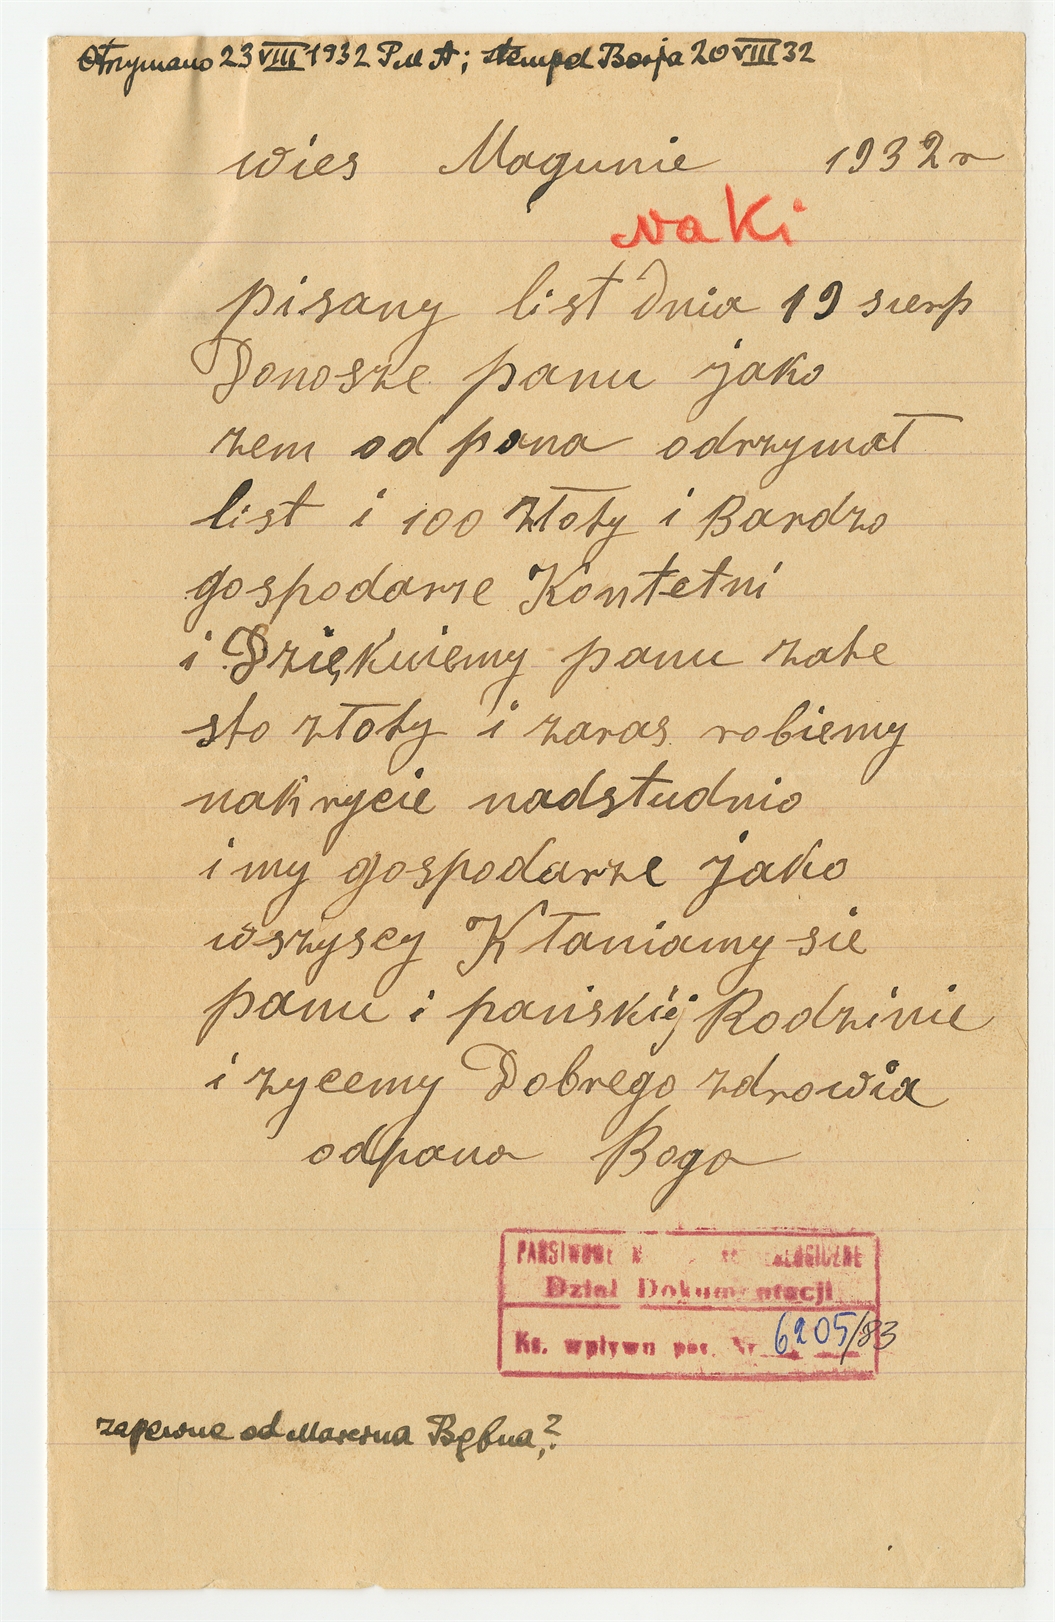 Otrzymano 23 VIII 1932 PMA; stempel Borja 20 VIII 32
wies Magunie 1932 r
naki
pisany list dnia 19 sierp
Donosze panu jako
zem od pana odrzymał
list i 100 złoty i Bardzo
gospodarze Kontetni
i Dziękuiemy panu zate
sto złoty i zaras robiemy
nakrycie nadstudnio
i my gospodarze jako
wszyscy Kłaniamy sie
panu i pańskiej Rodzinie
i zycemy Dobrego zdrowia
odpana Boga
PAŃSTWOWE
Dział Dokumentacji
Ks. wpływu poz. Nr 6205/83
zapewne od Marcina Bębna?